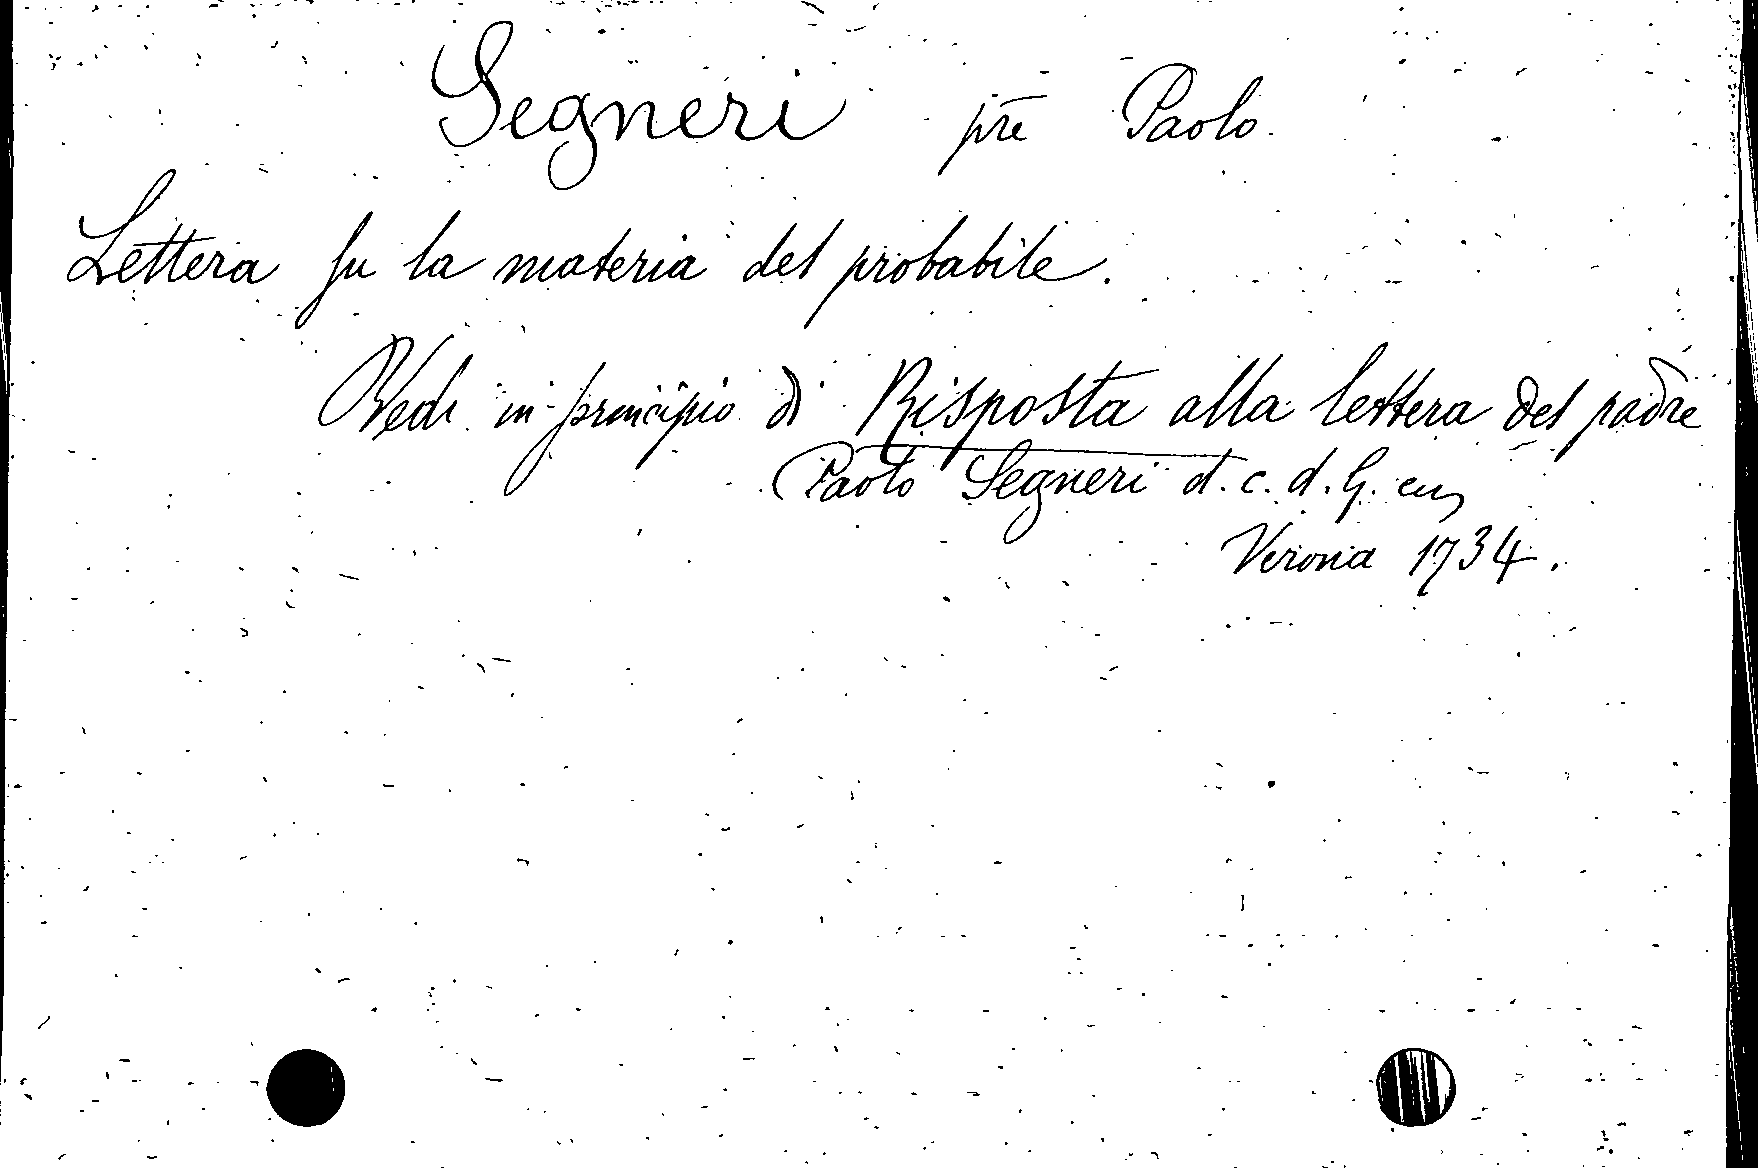 Segneri pr̄e Paolo.
Lettera su la materia del probabile.
Vedi in principio di Risposta alla lettera del padre
Paolo Segneri d. c. d. G. ecc
Verona 1734.